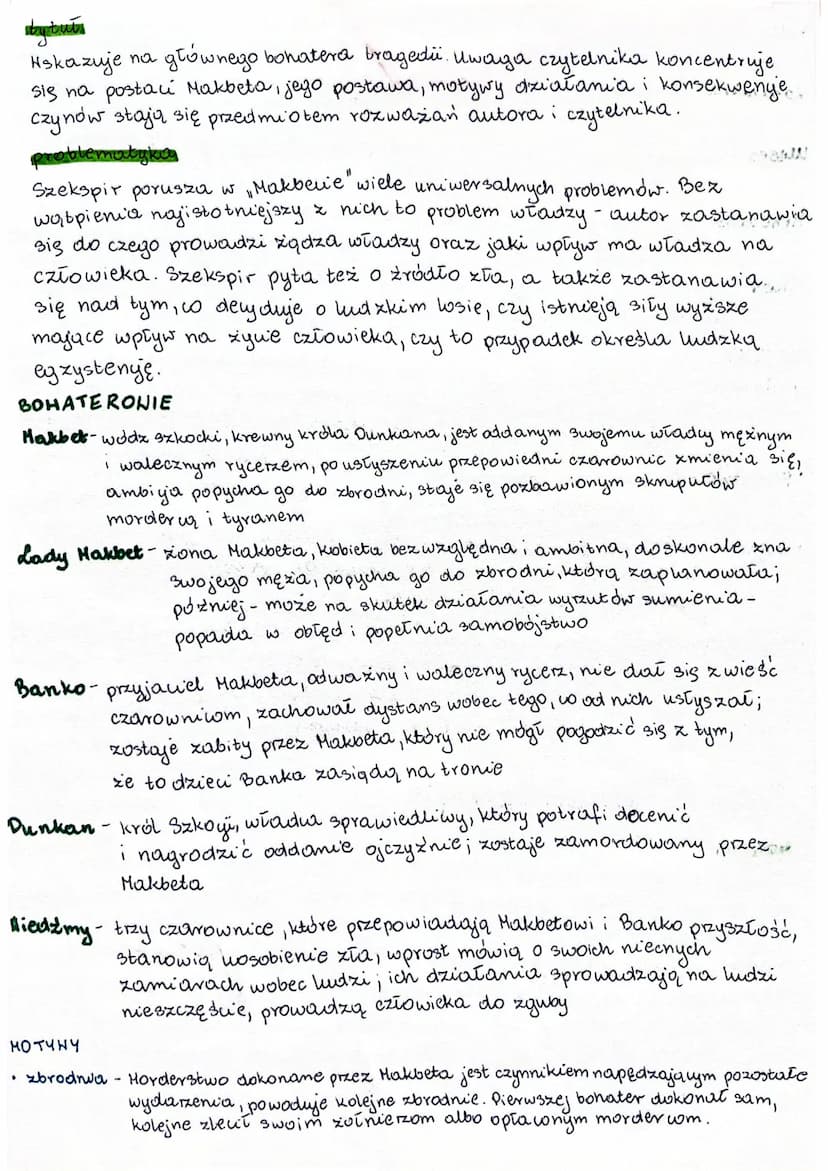 tytuł
Wskazuje na głównego bohatera tragedii. Uwaga czytelnika koncentruje
się na postaci Makbeta, jego postawa, motywy działania i konsekwencje
czynów stają się przedmiotem rozważań autora i czytelnika.
problematyka
Szekspir porusza w „Makbecie" wiele uniwersalnych problemów. Bez
wątpienia najistotniejszy z nich to problem władzy - autor zastanawia
się do czego prowadzi żądza władzy oraz jaki wpływ ma władza na
człowieka. Szekspir pyta też o źródło zła, a także zastanawia
się nad tym, co decyduje o ludzkim losie, czy istnieją siły wyższe
mające wpływ na życie człowieka, czy to przypadek określa ludzką
egzystencję.
BOHATEROWIE
Makbet - wódz szkocki, krewny króla Dunkana, jest oddanym swojemu władcy mężnym
i walecznym rycerzem, po usłyszeniu przepowiedni czarownic zmienia się,
ambicja popycha go do zbrodni, staje się pozbawionym skrupułów
mordercą i tyranem
Lady Makbet - żona Makbeta, kobieta bezwzględna i ambitna, doskonale zna
swojego męża, popycha go do zbrodni, którą zaplanowała;
później - może na skutek działania wyrzutów sumienia -
popada w obłęd i popełnia samobójstwo
Banko - przyjaciel Makbeta, odważny i waleczny rycerz, nie dał się zwieść
czarownicom, zachował dystans wobec tego, co od nich usłyszał;
zostaje zabity przez Makbeta, który nie mógł pogodzić się z tym,
że to dzieci Banka zasiądą na tronie
Dunkan - król Szkocji, władca sprawiedliwy, który potrafi docenić
i nagrodzić oddanie ojczyźnie; zostaje zamordowany przez
Makbeta
Wiedźmy - trzy czarownice, które przepowiadają Makbetowi i Banko przyszłość,
stanowią uosobienie zła, wprost mówią o swoich niecnych
zamiarach wobec ludzi; ich działania sprowadzają na ludzi
nieszczęście, prowadzą człowieka do zguby
MOTYWY
• zbrodnia - Morderstwo dokonane przez Makbeta jest czynnikiem napędzającym pozostałe
wydarzenia, powoduje kolejne zbrodnie. Pierwszej bohater dokonał sam,
kolejne zlecił swoim żołnierzom albo opłaconym mordercom.